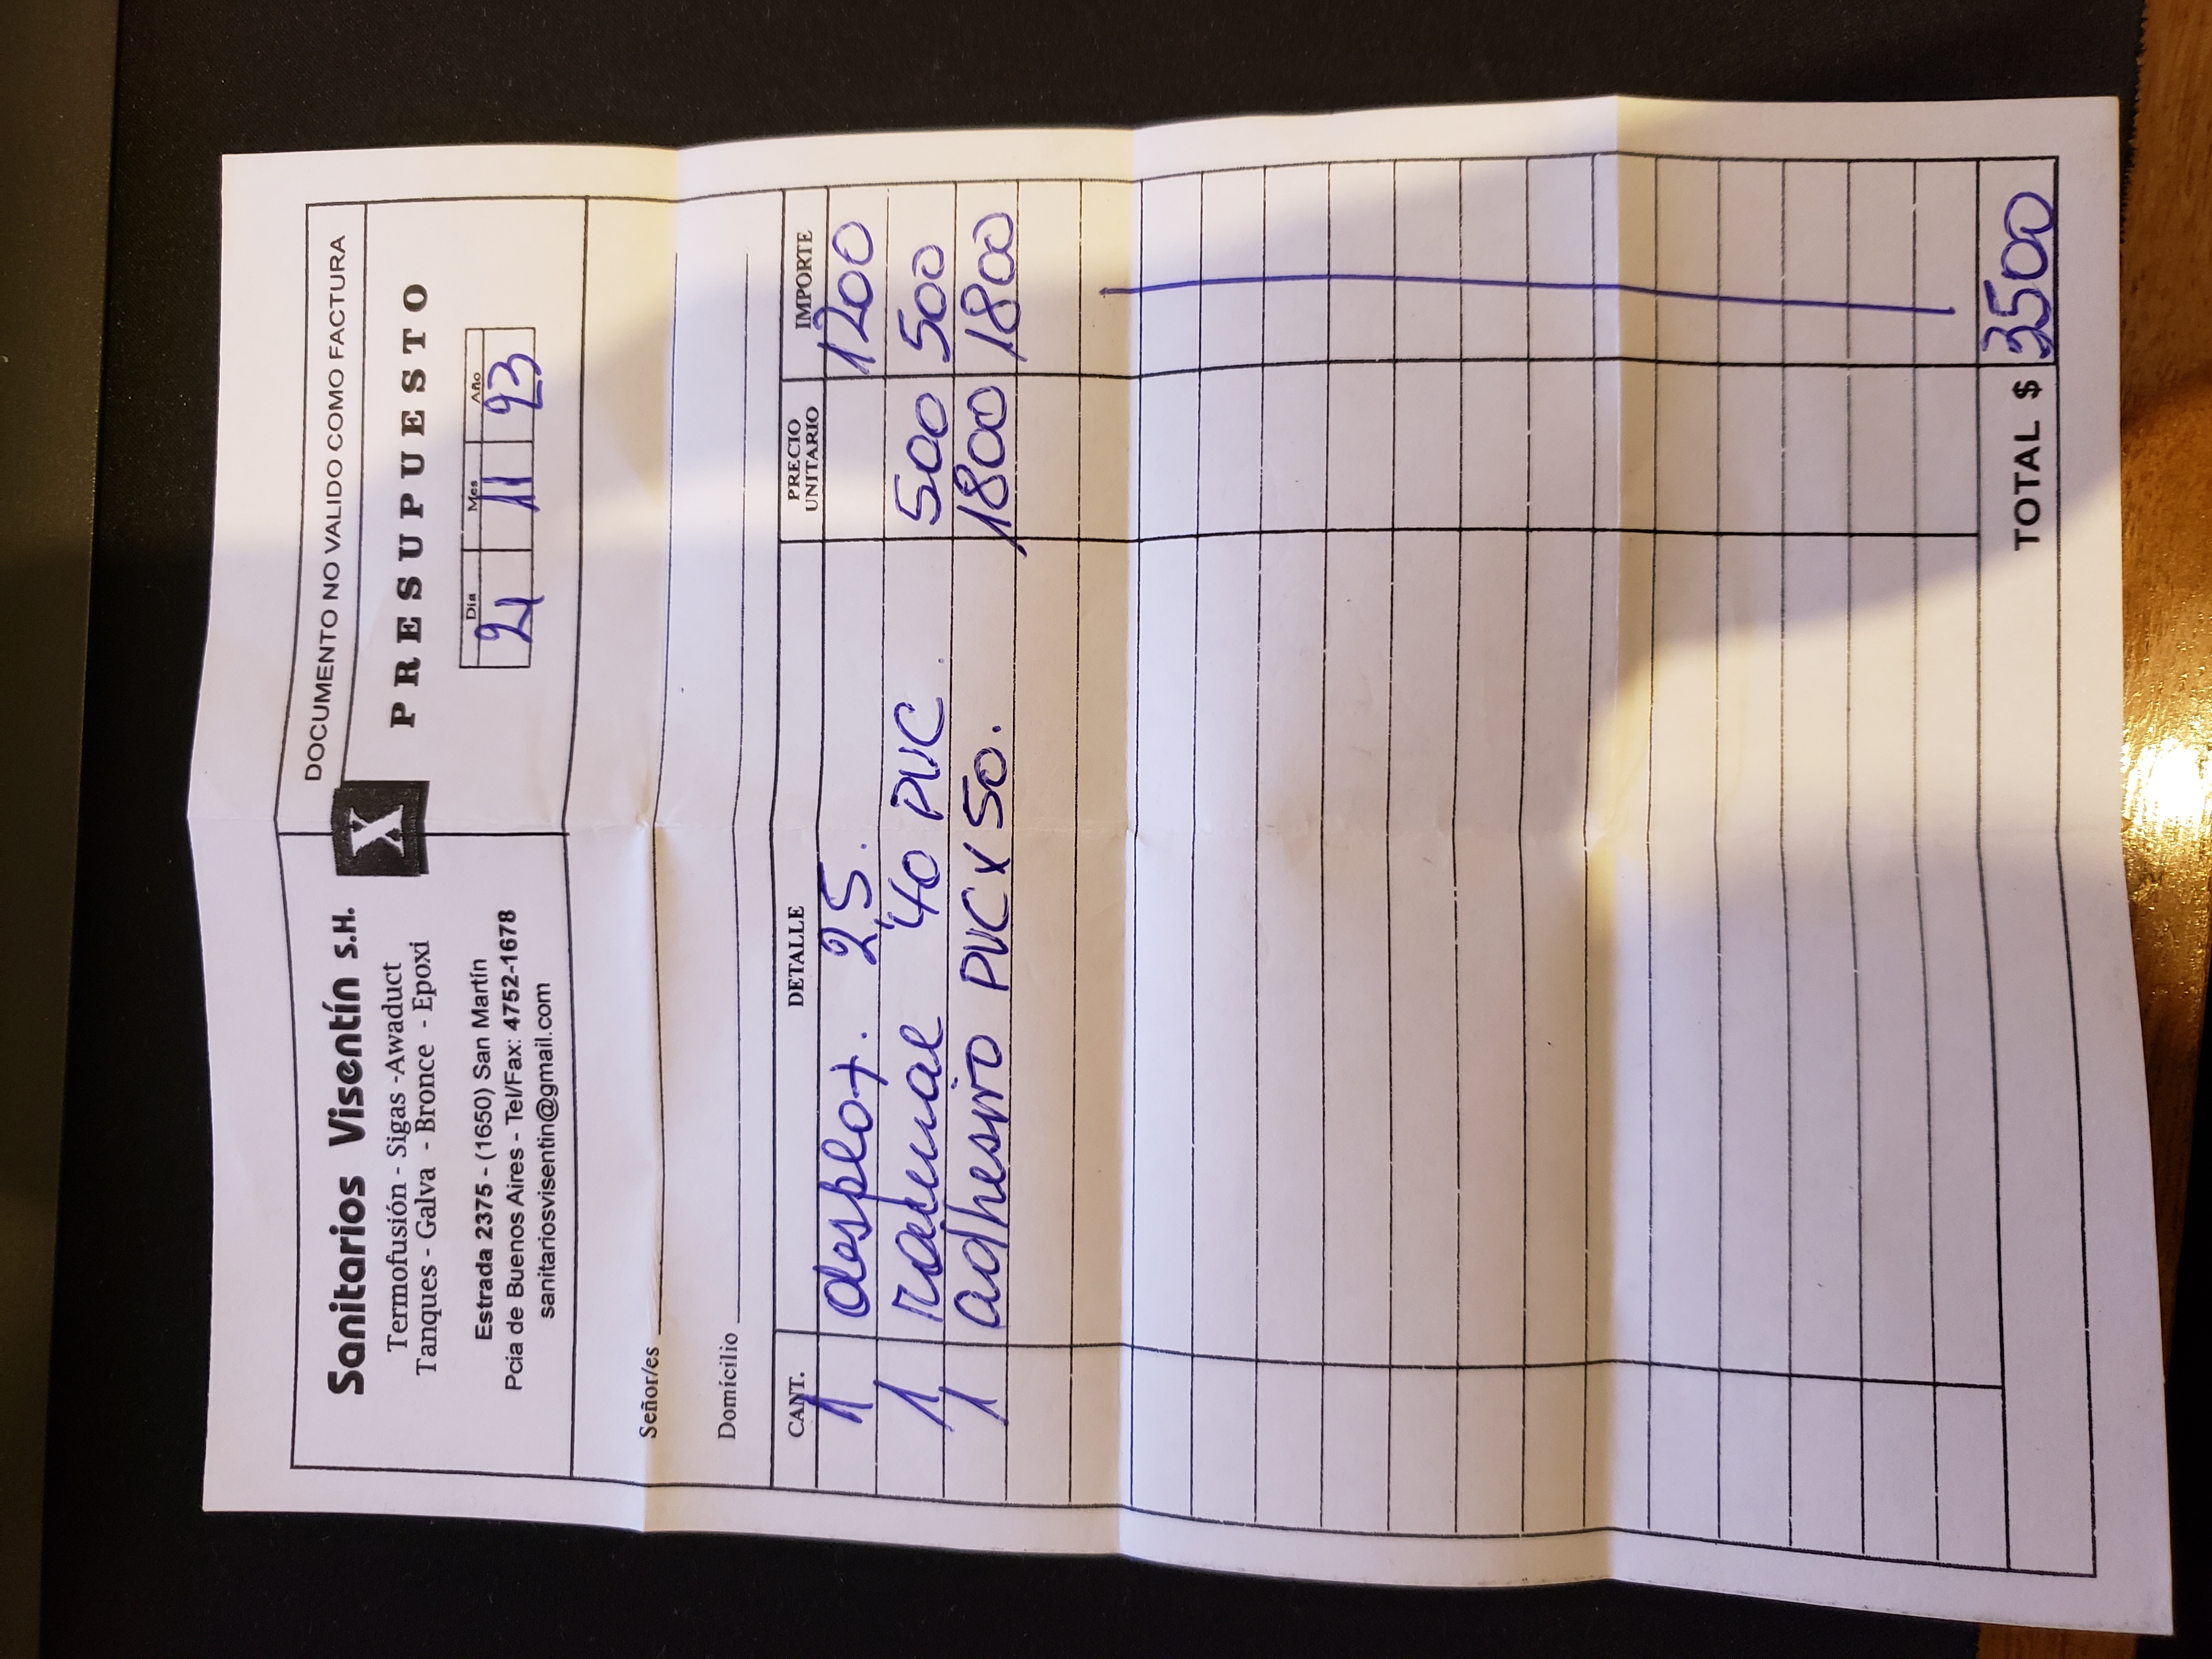 Sanitarios Visentín S.H.
Termofusión - Sigas -Awaduct
Tanques - Galva - Bronce - Epoxi
Estrada 2375 - (1650) San Martín
Pcia de Buenos Aires - Tel/Fax: 4752-1678
sanitariosvisentin@gmail.com
X
DOCUMENTO NO VALIDO COMO FACTURA
PRESUPUESTO
Dia Mes Año
21 11 23
Señor/es
Domicilio
CANT. DETALLE PRECIO UNITARIO IMPORTE
1 2,5. 1200
1 ramal 40 PVC. 500 500
1 adhesivo PVC x 50. 1800 1800
TOTAL $ 3500